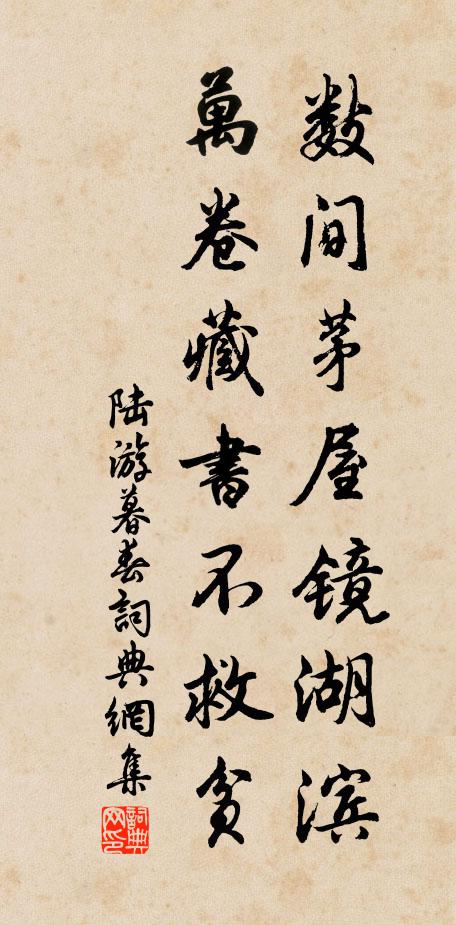 数间茅屋镜湖滨
萬卷藏書不救贫
陆游暮春詞典網集
詞典网印